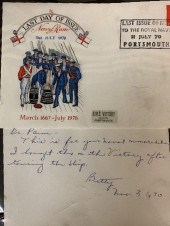 LAST DAY OF ISSUE
Navy Rum
31st JULY 1970
LAST ISSUE OF
TO THE ROYAL NAVY
31 JULY 70
PORTSMOUTH
March 1667 - July 1970
HMS VICTORY
This is for your naval memorabilia
I bought this on the Victory after
touring the ship.
Betty
Nov. 3, 970